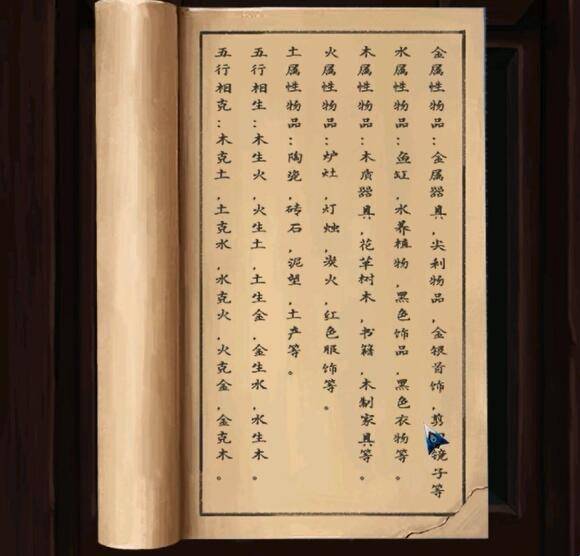 金属性物品:金属器具,尖利物品,金银首饰,剪镜子等
水属性物品:鱼缸,水养植物,黑色饰品,黑色衣物等。
木属性物品:木质器具,花草树木,书籍,木制家具等。
火属性物品:炉灶,灯烛,炭火,红色服饰等。
土属性物品:陶瓷,砖石,泥塑,土产等。
五行相生:木生火,火生土,土生金,金生水,水生木。
五行相克:木克土,土克水,水克火,火克金,金克木。